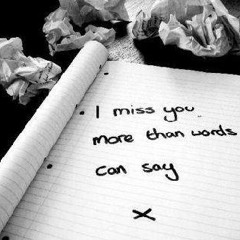 I miss you
more than words
can say
x